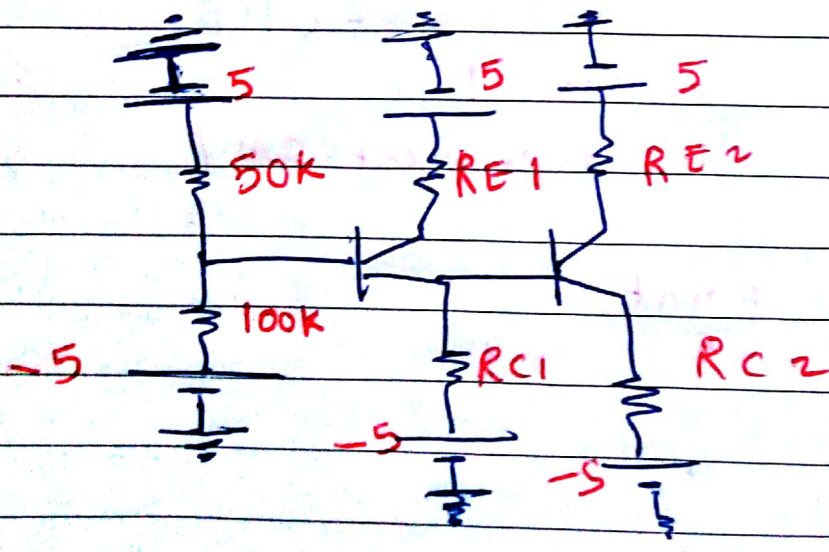 5 5 5
50K RE1 RE2
100K
-5 RC1 RC2
-5
-5